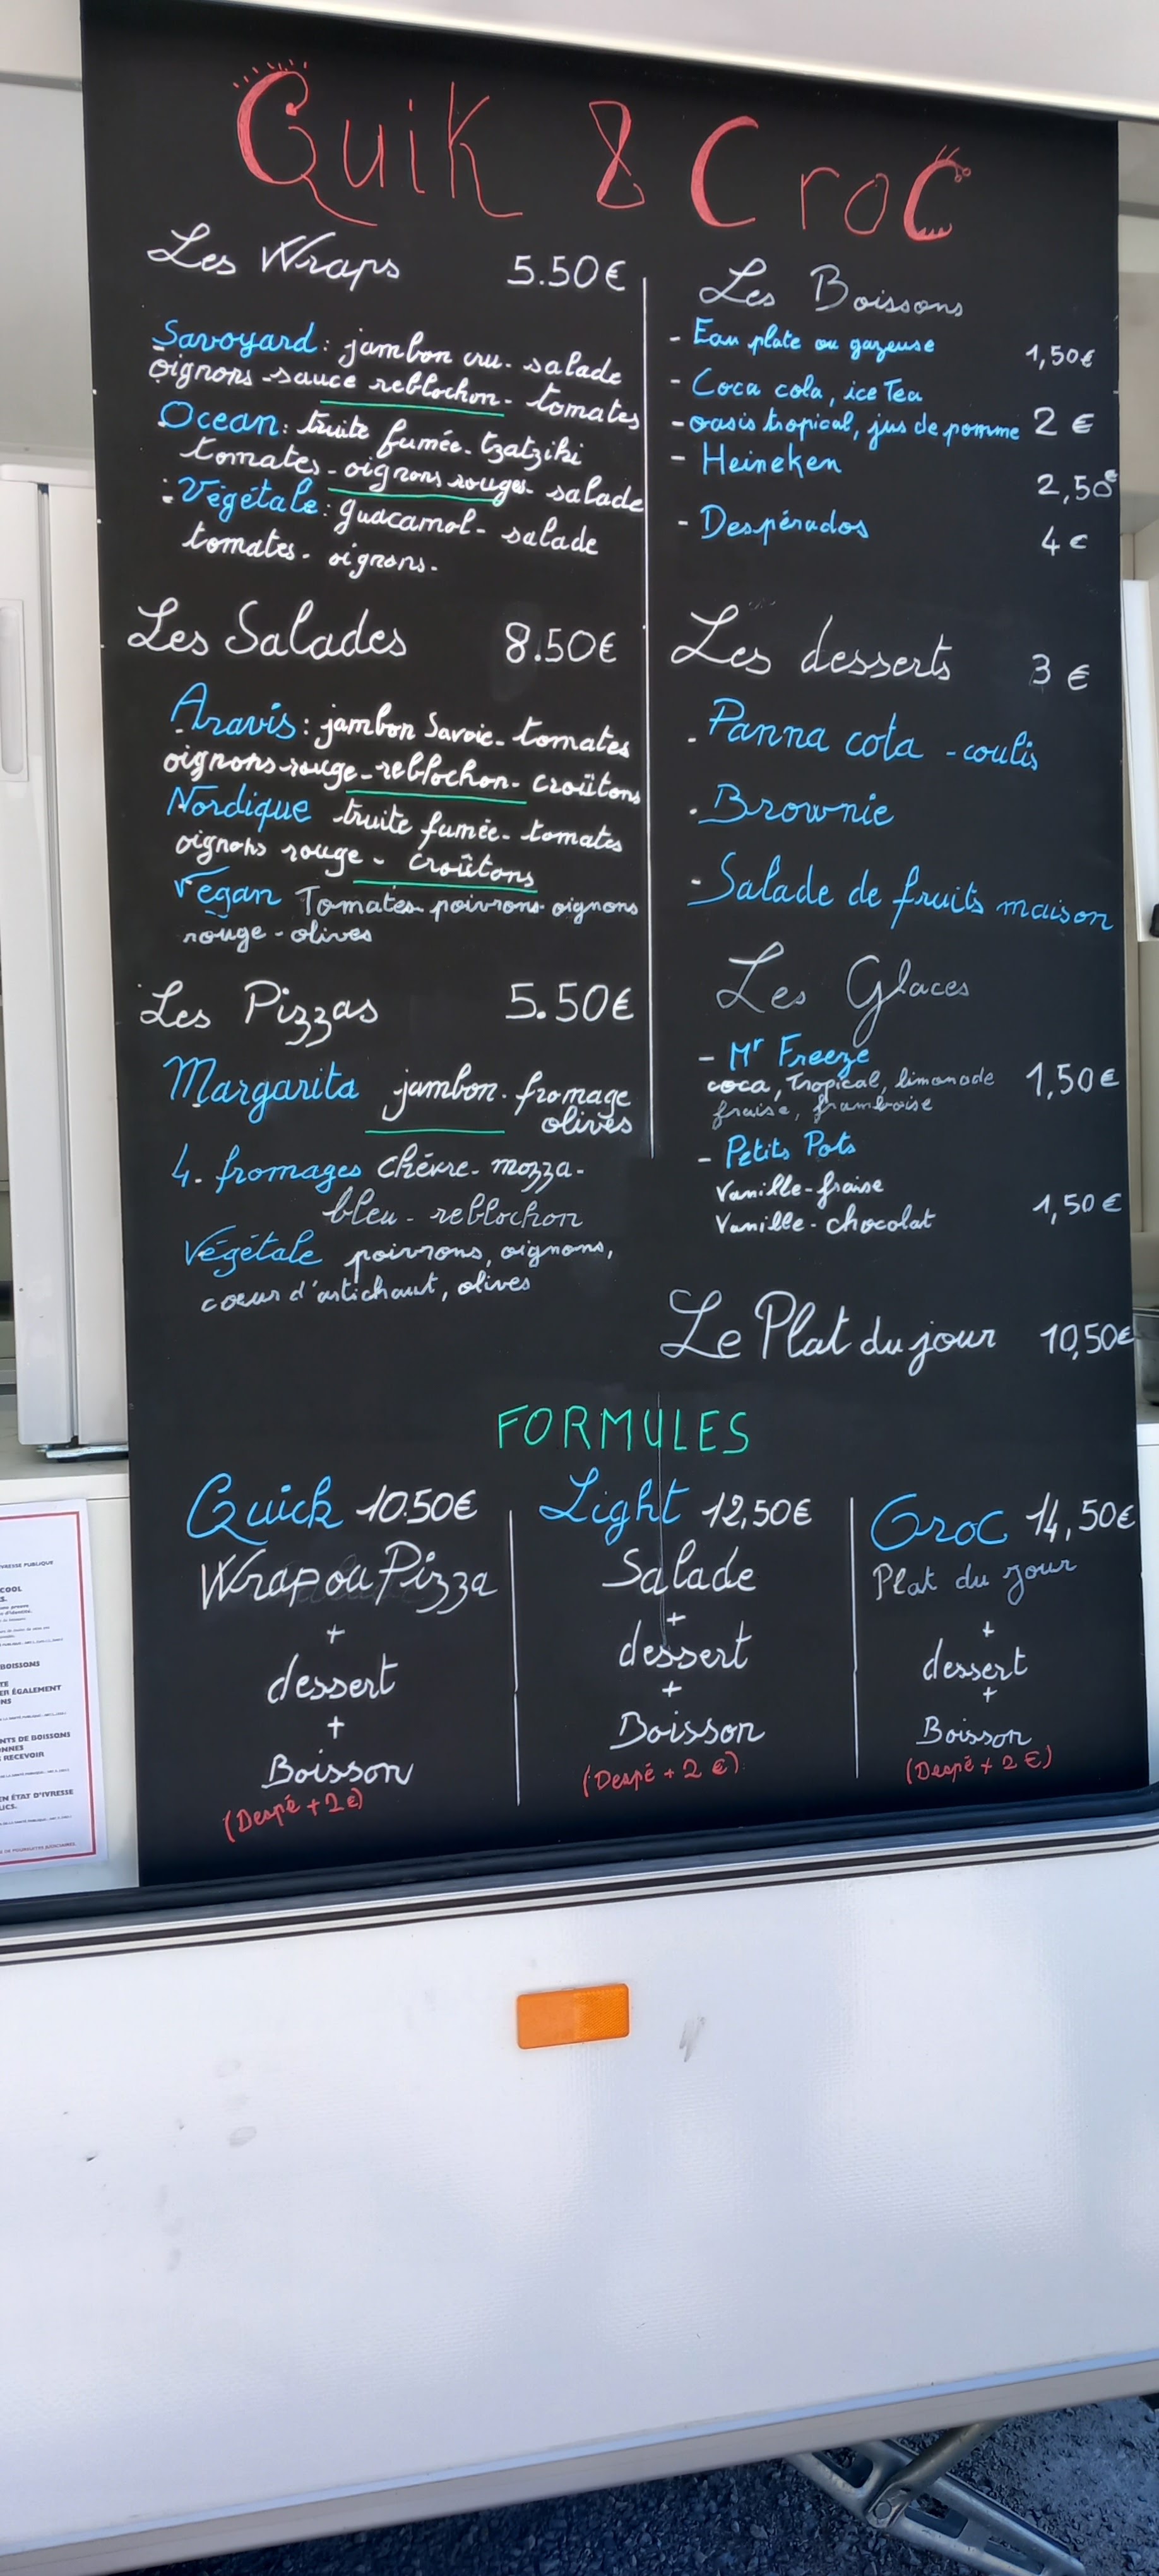 Quik & Croc
Les Wraps 5.50€
Savoyard : jambon cru - salade
oignons - sauce reblochon - tomates
Ocean : truite fumée - tzatziki
tomates - oignons rouges - salade
: Végétale : guacamol - salade
tomates - oignons.
Les Salades 8.50€
Aravis : jambon Savoie - tomates
oignons rouge - reblochon - croûtons
Nordique truite fumée - tomates
oignons rouge - croûtons
Vegan Tomates - poivrons - oignons
rouge - olives
Les Pizzas 5.50€
Margarita jambon - fromage
olives
4 - fromages chévre - mozza -
bleu - reblochon
Végétale poivrons, oignons,
coeur d'artichaut, olives
Les Boissons
- Eau plate ou gazeuse 1,50€
- Coca cola, ice Tea
- oasis tropical, jus de pomme 2 €
- Heineken 2,50€
- Despérados 4€
Les desserts 3 €
- Panna cota - coulis
- Brownie
- Salade de fruits maison
Les Glaces
- Mr Freeze
coca, Tropical, limonade 1,50€
fraise, framboise
- Petits Pots
Vanille - fraise
Vanille - chocolat 1,50€
Le Plat du jour 10,50€
FORMULES
Quick 10.50€
Wrap ou Pizza
+
dessert
+
Boisson
(Despé + 2€)
Light 12,50€
Salade
+
dessert
+
Boisson
(Despé + 2 €)
Croc 14,50€
Plat du jour
+
dessert
+
Boisson
(Despé + 2 €)
IVRESSE PUBLIQUE
COOL
BOISSONS
ER ÉGALEMENT
NTS DE BOISSONS
RECEVOIR
EN ÉTAT D'IVRESSE